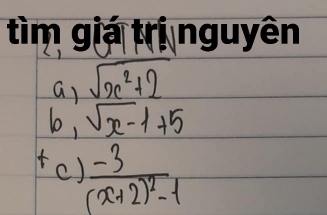 tìm giá trị nguyên
2, GTNN
a, √x²+2
b, √x-1+5
+ c) -3/(x+2)²-1